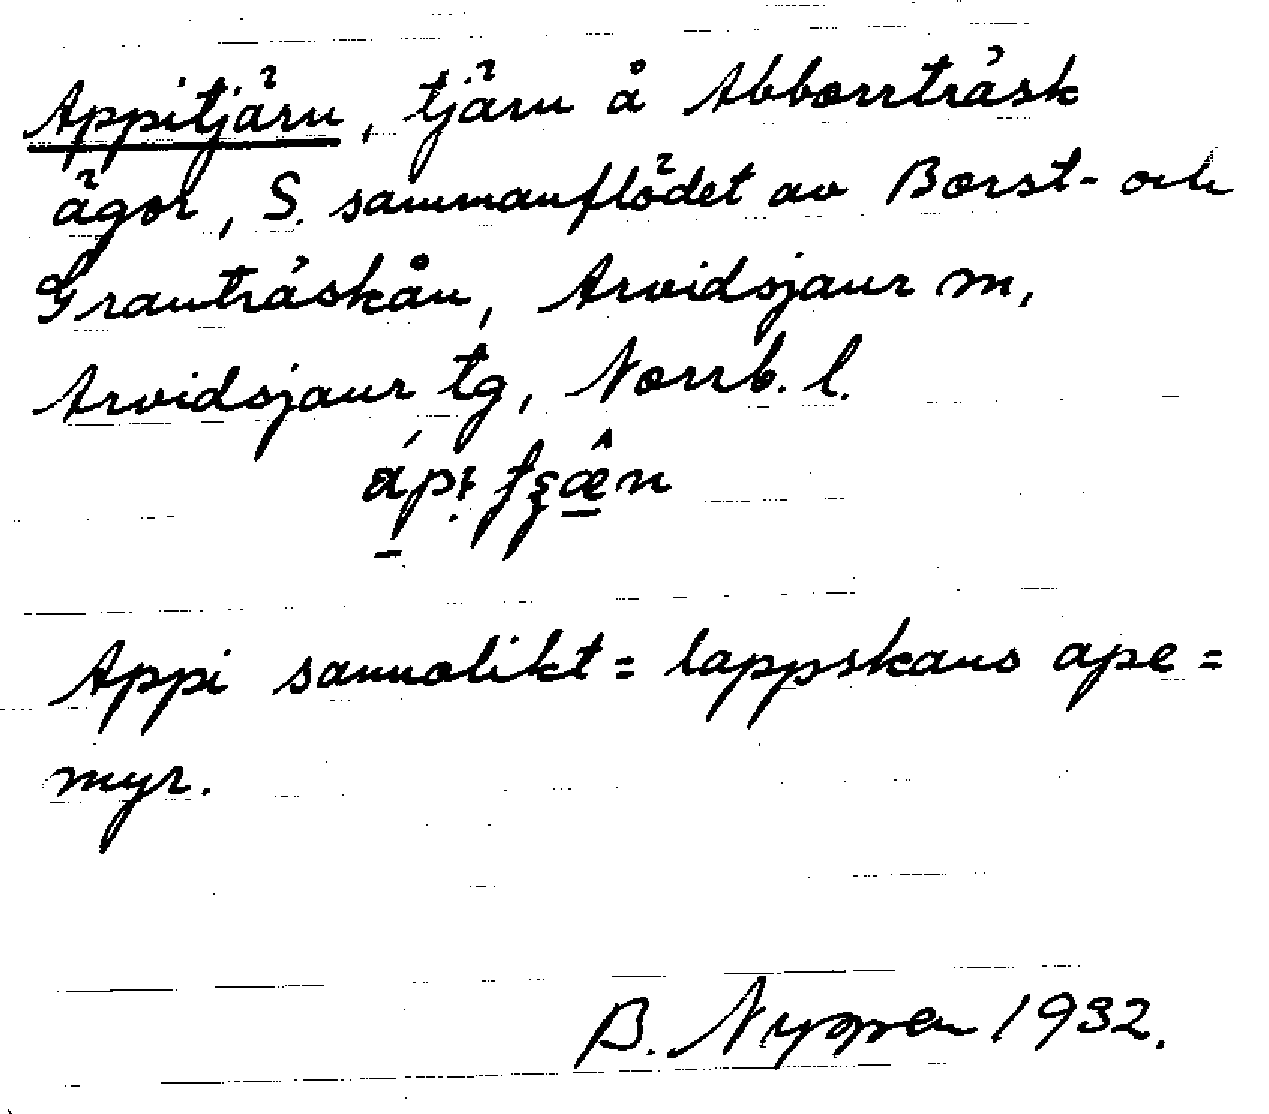 Appitjärn, tjärn å Abborrträsk
ägor, S. sammanflödet av Borst- och
Granträskån, Arvidsjaur sn,
Arvidsjaur tg, Norrb. l.
Appi sannolikt = lappskans ape =
myr.
B. Nyman 1932.